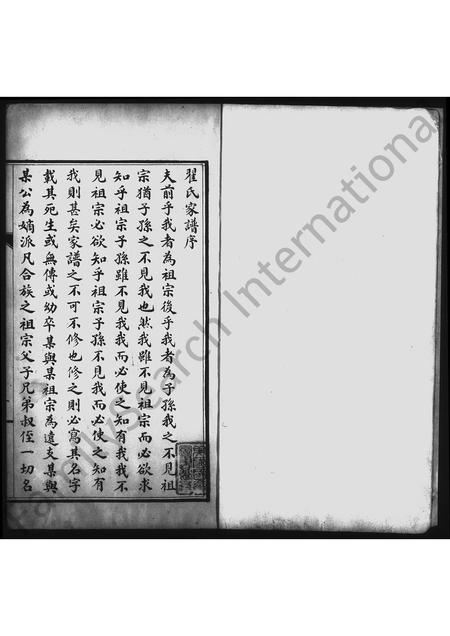 翟氏家譜序
夫前乎我者為祖宗後乎我者為子孫我之不見祖
宗猶子孫之不見我也然我雖不見祖宗而必欲求
知乎祖宗子孫雖不見我我而必使之知有我我不
見祖宗必欲知乎祖宗子孫不見我而必使之知有
我則甚矣家譜之不可不修也修之則必寫其名字
載其死生或無傳或幼卒某與某祖宗為遠支某與
某公為嫡派凡合族之祖宗父子兄弟叔侄一切名
FamilySearch International